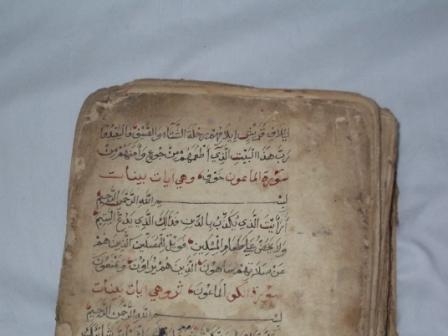 لإيلاف قريش إيلافهم رحلة الشتاء والصيف فاليعبدوا
رب هذا البيت الذي أطعمهم من جوع وآمنهم من
خوف سورة الماعون وهي آيات بينات
بسم الله الرحمن الرحيم
أرأيت الذي يكذب بالدين فذلك الذي يدع اليتيم
ولا يحض على طعام المسكين فويل للمصلين الذين هم
عن صلاتهم ساهون الذين هم يراؤن ويمنعون
الماعون سورة الكوثر وهي آيات بينات
بسم الله الرحمن الرحيم